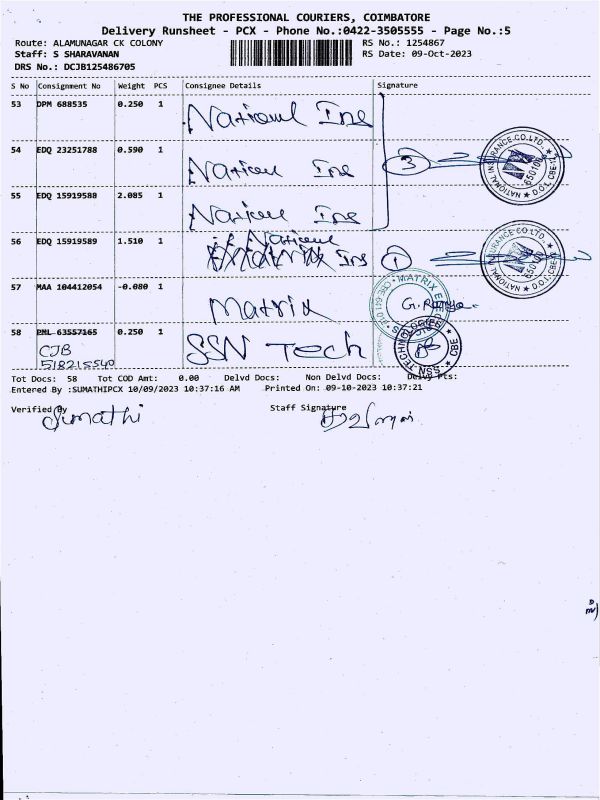 THE PROFESSIONAL COURIERS, COIMBATORE
Delivery Runsheet - PCX - Phone No.:0422-3505555 - Page No.:5
Route: ALAMUNAGAR CK COLONY RS No.: 1254867
Staff: S SHARAVANAN RS Date: 09-Oct-2023
DRS No.: DCJB125486705
S No Consignment No Weight PCS Consignee Details Signature
53 DPM 688535 0.250 1 National Ins
54 EDQ 23251788 0.590 1 National Ins 3
55 EDQ 15919588 2.085 1 National Ins
56 EDQ 15919589 1.510 1 National Ins 1
57 MAA 104412054 -0.080 1 Matrix
58 PML 63557165 0.250 1 SSN Tech
CJB
518215540
NATIONAL INSURANCE CO. LTD. D.O.I, CBE 650100
INSURANCE CO LTD. D.O.I, CBE 650100
MATRIX
SSN TECHNOLOGIES CBE
Tot Docs: 58 Tot COD Amt: 0.00 Delvd Docs: Non Delvd Docs: Delvy Pts:
Entered By :SUMATHIPCX 10/09/2023 10:37:16 AM Printed On: 09-10-2023 10:37:21
Verified By Staff Signature
Sumathi